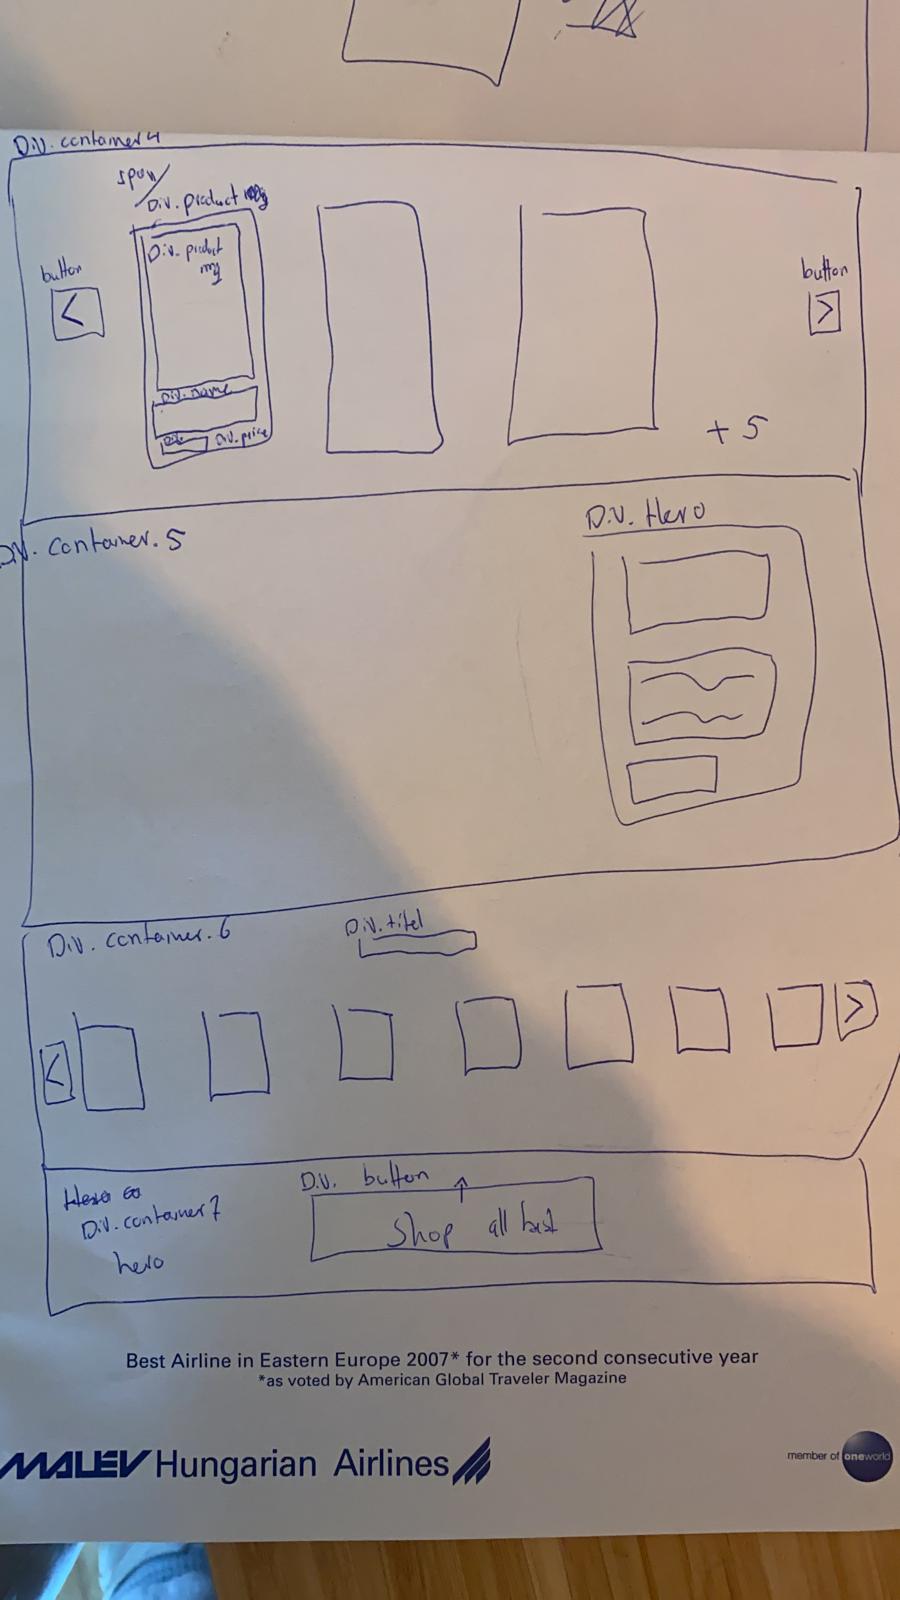 Div. container 4
span/
Div. product
button
Div. product
img
button
Div. name
Div. price
+ 5
Div. container. 5
Div. Hero
Div. container. 6
Div. titel
Div. container 7
hero
Div. button
Shop all best
Best Airline in Eastern Europe 2007* for the second consecutive year
*as voted by American Global Traveler Magazine
MALÉV Hungarian Airlines
member of oneworld